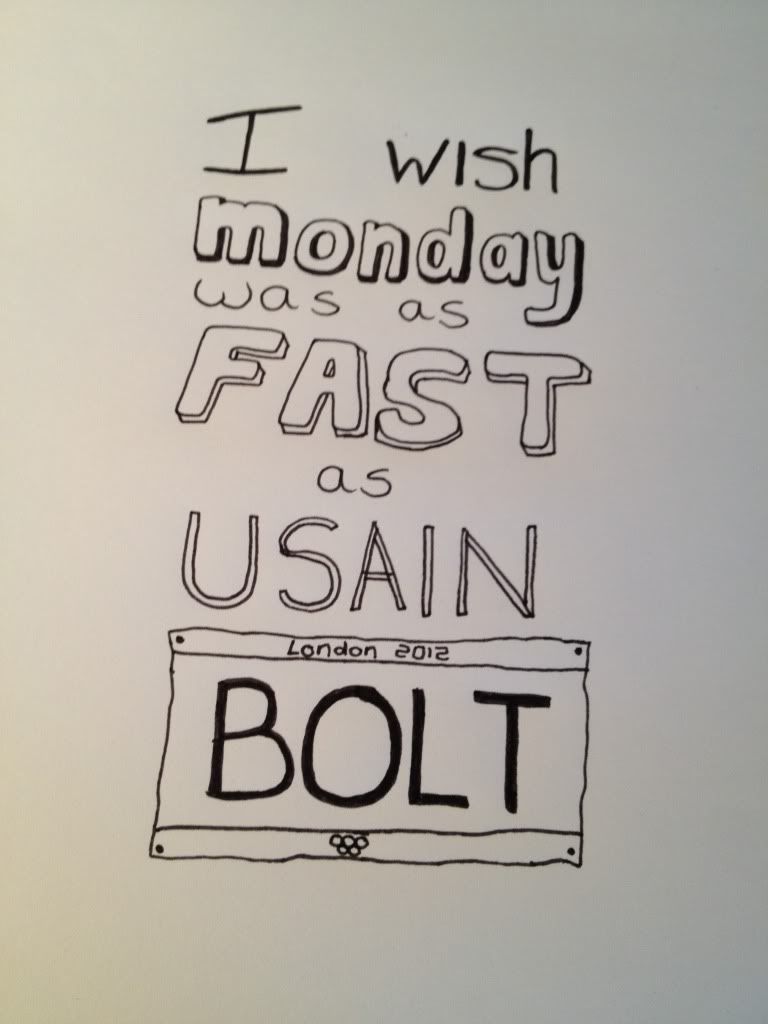 I wish
monday
was as
FAST
as
USAIN
London 2012
BOLT